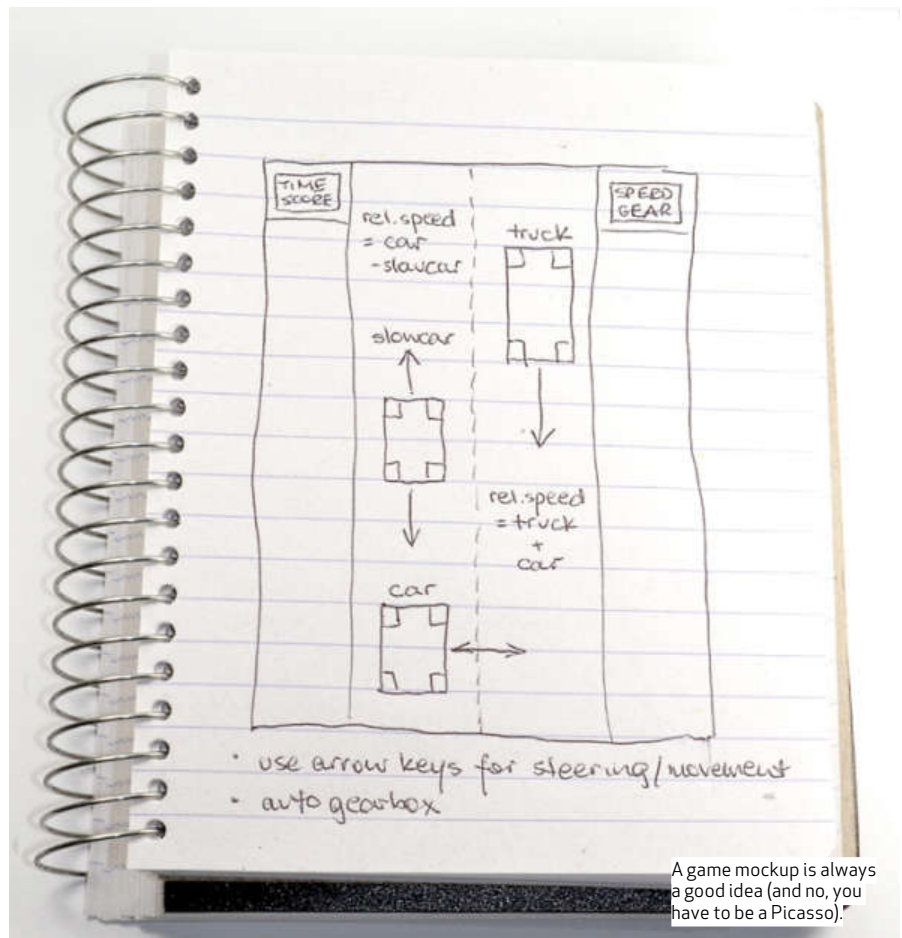 TIME
SCORE
SPEED
GEAR
rel.speed
= car
-slowcar
truck
slowcar
rel.speed
= truck
+
car
car
· use arrow keys for steering/movement
· auto gearbox
A game mockup is always
a good idea (and no, you
have to be a Picasso).